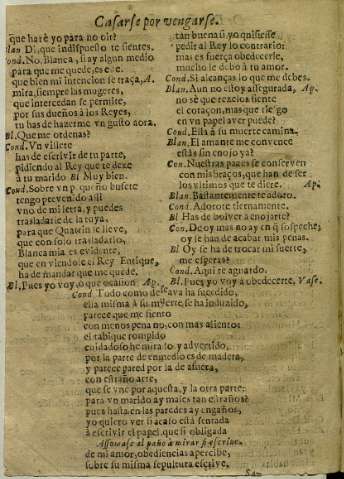 Casarse por vengarse.
que harè yo para no oir?
Blan Di, que indispuesto te sientes.
Cond. No, Blanca, si ay algun medio
para que me quede, es de
que bien mi intencion se traça, A.
mira, siempre las mugeres,
que intercedan se permite,
por sus dueños a los Reyes,
tu has de hazerme vn gusto aora.
Bl. Que me ordenas?
Cond. Vn villete
has de escriuir de tu parte,
pidiendo al Rey que te dexe
à tu marido Bl Muy bien.
Cond. Sobre vn bufete
tengo preuenido assi
vno de mi letra, y puedes
trasladarle de la tuya.
para que Quatrin le lleue,
que con solo trasladarlo,
Blanca mia es euidente,
que en viendole el Rey Enrique,
ha de mandar que me quede.
Bl, Pues yo voy, ò que ocasion Ap.
tan buena si yo quisiesse
pedir al Rey lo contrario:
mas es fuerça obedecerle,
mucho le debo à tu amor.
Cond. Si alcanças lo que me debes.
Blan. Aun no estoy assegurada, Ap.
no sè que rezelos siente
el coraçon, mas que riesgo
en vn papel auer puede?
Cond. Ella à su muerte camina.
Blan. El amante me conuence
estàs sin enojo ya?
Con. Nuestras pazes se conseruen
con mis braços, que han de ser
los vltimos que te diere. Ap.
Blan. Bastantemente te adoro.
Cond. Adorote tiernamente.
Bl Has de boluer à enojarte?
Con. De oy mas no ay en q̃ sospeche,
oy se han de acabar mis penas.
Bl Oy se ha de trocar mi suerte,
me esperas?
Cond. Aqui te aguardo.
Bl. Pues yo voy à obedecerte, Vase.
Cond Todo como deseaua ha sucedido,
ella misma à su muerte se ha induzido,
parece que me siento
con menos pena no, con mas aliento:
el tabique rompido
cuidadoso he mirado, y aduertido,
por la parte de enmedio es de madera,
y parece pared por la de afuera,
con estraño arte,
que se vne por aquesta, y la otra parte:
para vn marido ay males tan estraños?
pues hasta en las paredes ay engaños,
yo quiero ver si acaso està sentada
à escriuir el papel, que si obligada
Assomase al paño à mirar si escriue.
de mi amor, obediencias apercibe,
sobre su misma sepultura escriue,